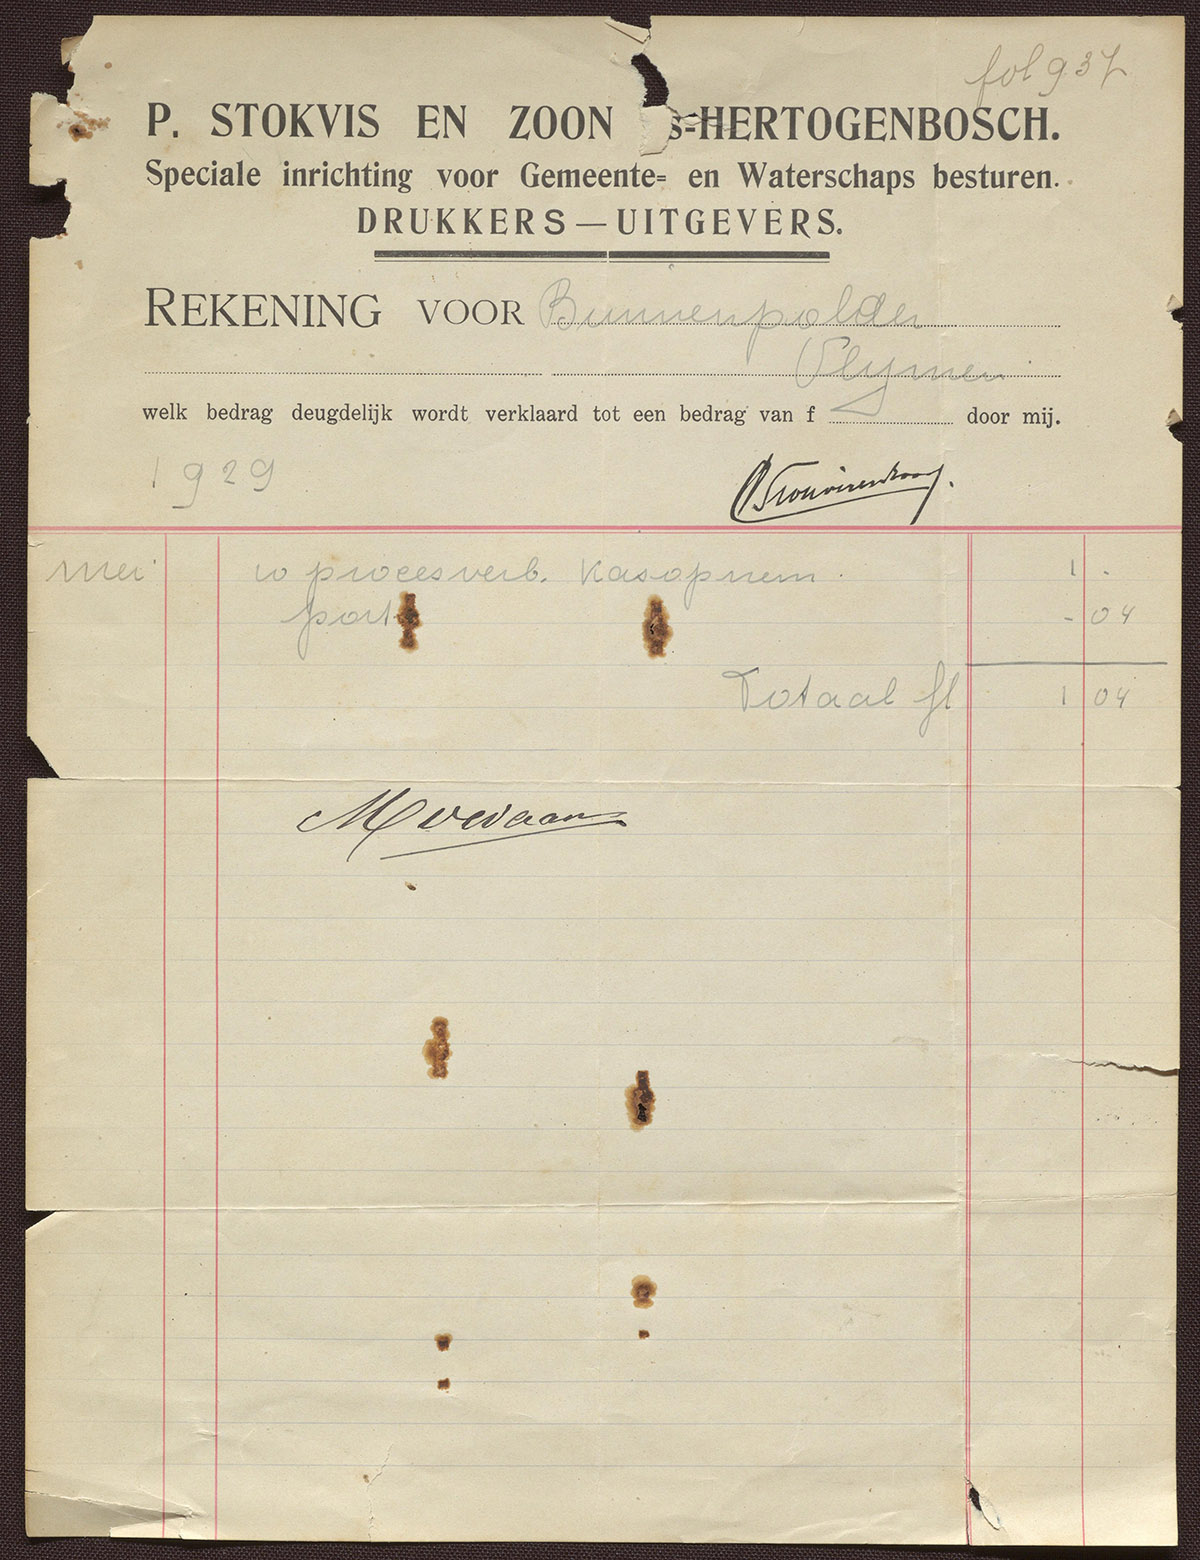 fol 937
P. STOKVIS EN ZOON s-HERTOGENBOSCH.
Speciale inrichting voor Gemeente= en Waterschaps besturen.
DRUKKERS — UITGEVERS.
REKENING VOOR Binnenpolder
Vlymen
welk bedrag deugdelijk wordt verklaard tot een bedrag van f door mij.
1929
PStokvisenzoon.
Mei 10 procesverb. Kasopnem. 1 -
port - 04
Totaal fl 1 04